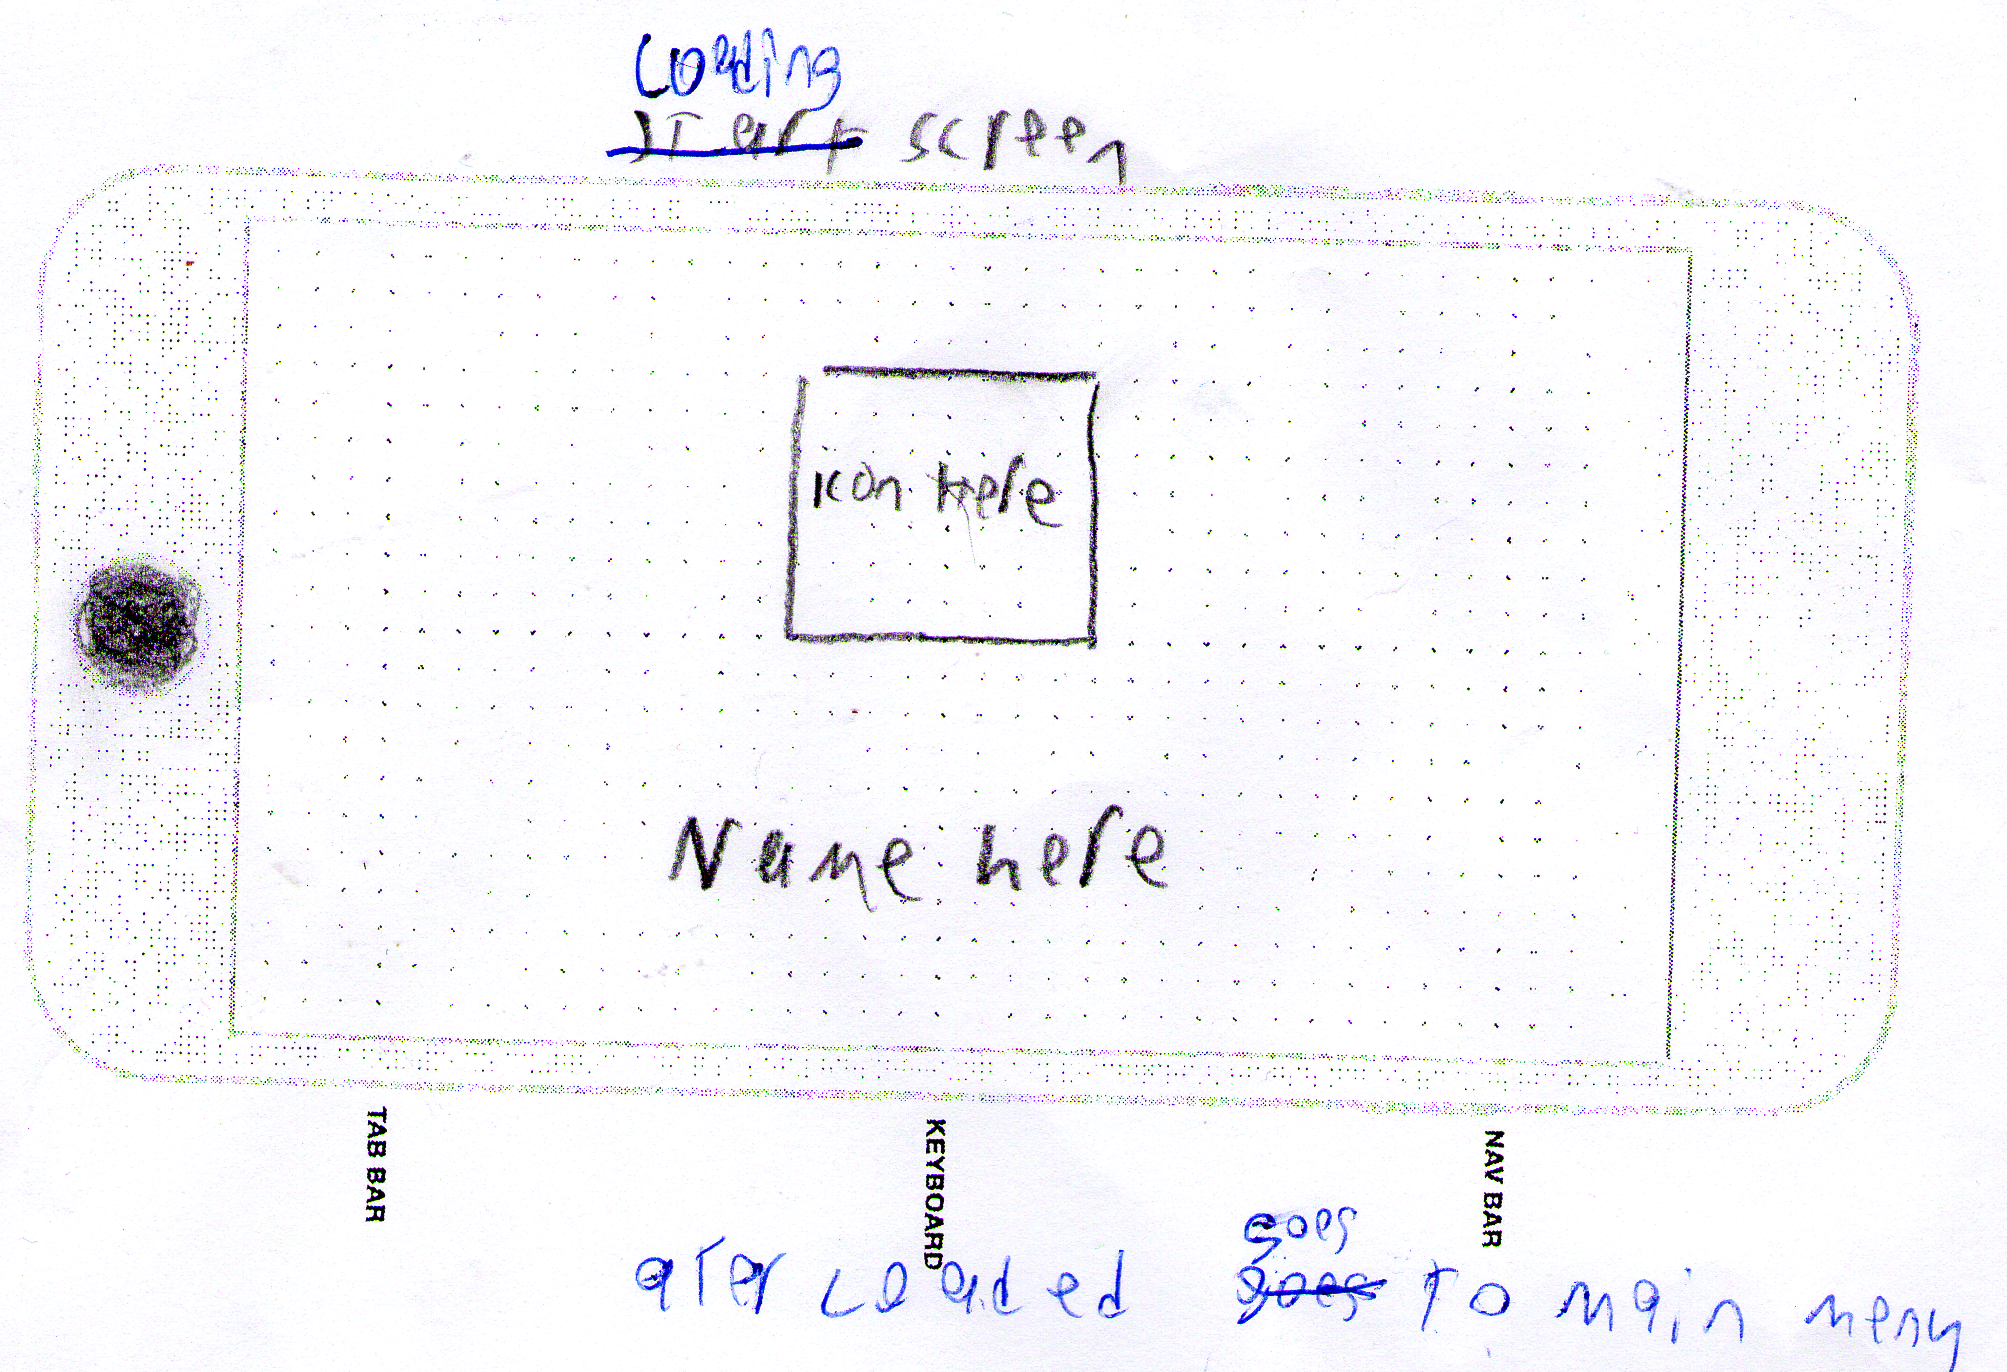 Loading
start screen
icon here
Name here
TAB BAR
KEYBOARD
NAV BAR
goes
ater Loaded goes to main menu